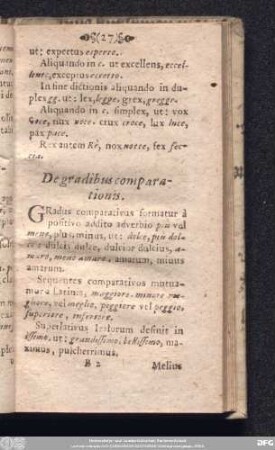 (27)
ut: expertus esperto.
Aliquando in c. ut excellens, eccel-
lente, exceptus eccetto.
In fine dictionis aliquando in du-
plex gg. ut: lex, legge, grex, gregge.
Aliquando in c. simplex, ut: vox
voce, nux noce, crux croce, lux luce,
pax pace.
Rex autem Rè, nox notte, fex fec-
cia.
De gradibus compara-
tionis.
GRadus comparativus formatur à
positivo addito adverbio più vel
meno, plus, minus, ut: dolce, più dol-
ce dulcis dulce, dulcior dulcius, a-
maro, meno amaro, amarum, minus
amarum.
Sequentes comparativos mutua-
mur à Latinis, maggiore, minore mi-
gliore, vel meglio, peggiore vel peggio,
superiore, inferiore.
Superlativus Italorum desinit in
issimo, ut: grandissimo, bellissimo, ma-
ximus, pulcherrimus.
B 2 Melius